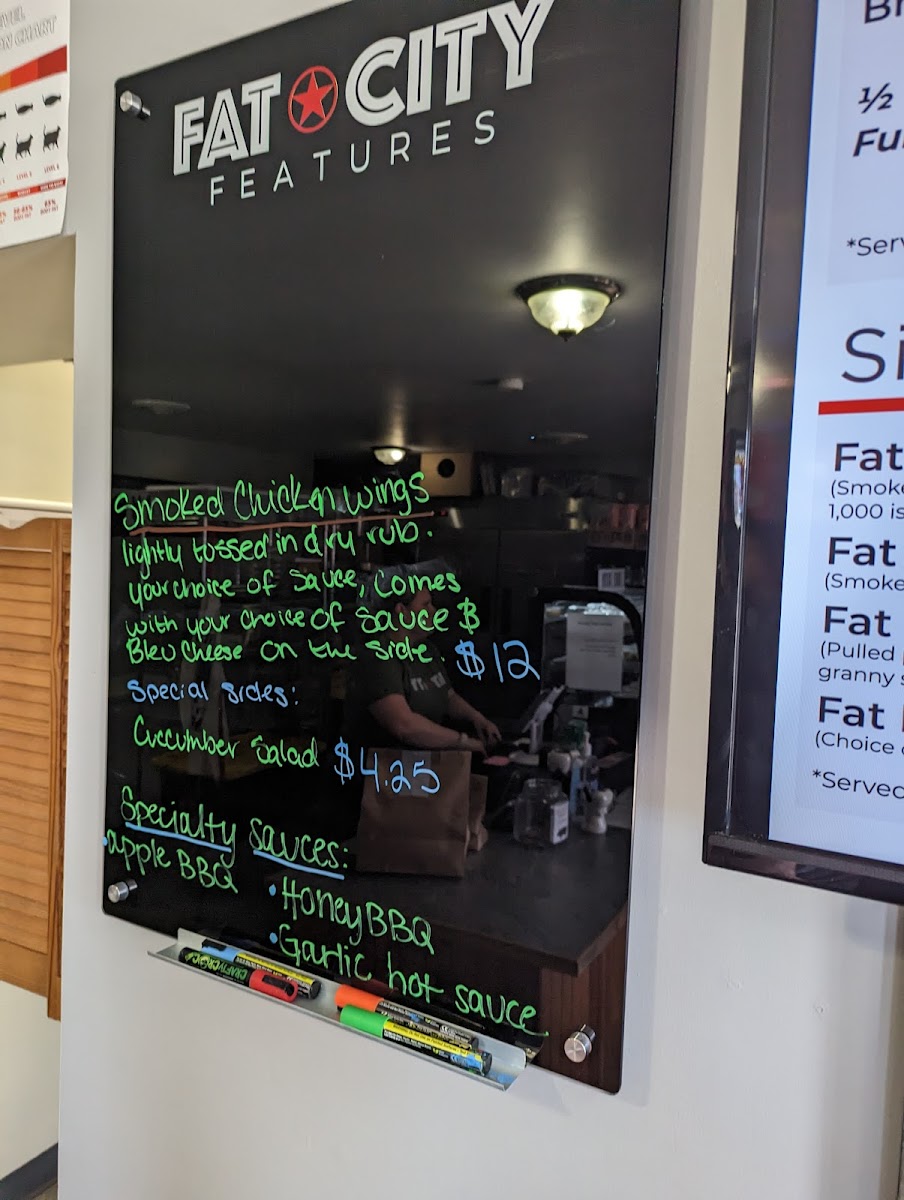 FAT CITY
FEATURES
Smoked Chicken Wings
lightly tossed in dry rub.
your choice of sauce, comes
with your choice of sauce &
Bleu Cheese on the side. $12
Special sides:
Cuccumber Salad $4.25
Specialty Sauces:
•apple BBQ
•Honey BBQ
•Garlic hot sauce
CRAFTYCROCS
ON CHART
½
*Serv
Si
Fat
(Smoke
1,000 is
Fat
(Smoke
Fat
(Pulled
granny s
Fat
(Choice
*Served